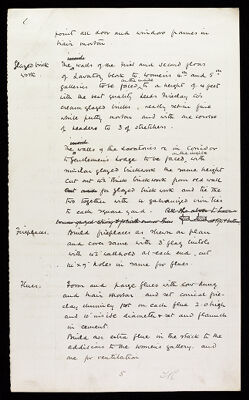 point all door and window frames in
hair mortar
Glazed brick work.
inside
The walls of the first and second floors
of Lavatory block to women's 4th and 5th
galleries to be faced on the inside to a height of 4 feet
with the best quality
cream glazed bricks, neatly set in fine
white putty mortar and with one course
of headers to 3 of stretchers.
inside
The walls of the Lavatories or in Corridor
to Gentlemen's Lodge to be faced on the inside with
similar glazed brickwork the same height
cut out 4½ thick brickwork from old wall
for glazed brick work and tie the
two together with 4 galvanized iron ties
to each square yard.
Fireplaces.
Build fireplaces as shewn on plan
and core same with 3" flag lintols
with wallholds at each end, cut
12" x 9" holes in same for flues
Flues.
Form and parge flues with cow dung
and hair mortar and set conical fire
clay chimney pot on each flue 2.0 high
and 10" inside diameter & set and flaunch
in cement.
Build an extra flue in the stack to the
additions to the women's gallery and
one for ventilation
5